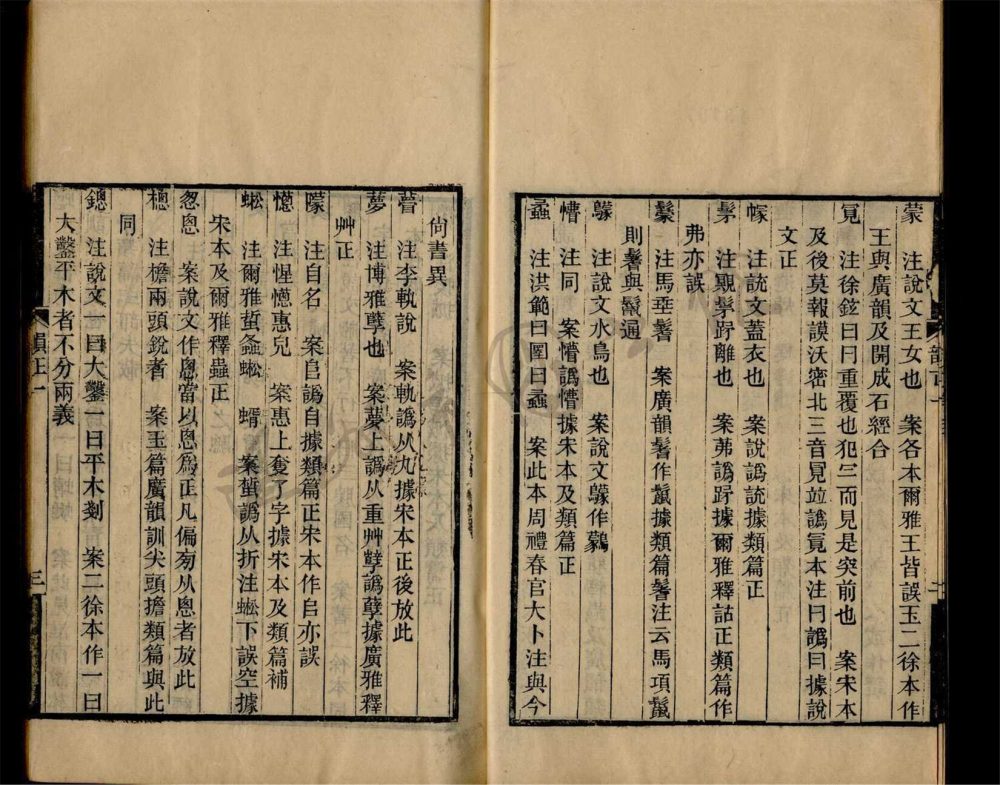 蒙　注說文王女也　案各本爾雅王皆誤玉二徐本作
王與廣韻及開成石經合
冡　注徐鉉曰冃重覆也犯三而見是突前也　案宋本
及後莫報謨沃密北三音冐竝譌冡本注冃譌曰據說
文正
幏　注說文蓋衣也　案說譌說據類篇正
髳　注覭髳茀離也　案茀譌䟛據爾雅釋詁正類篇作
弗亦誤
鬤　注馬垂鬐　案廣韻鬐作鬣據類篇鬐注云馬項鬣
則鬐與鬣通
鸏　注說文水鳥也　案說文鸏作鸏
懵　注同　案懵譌懵據宋本及類篇正
蟊　注洪範曰圛曰蟊　案此本周禮春官大卜注與今
尚書異
瞢　注李軌說　案軌譌从九據宋本正後放此
夢　注博雅孽也　案夢上譌从重艸孽譌孽據廣雅釋
艸正
矇　注自名　案㠯譌自據類篇正宋本作㠯亦誤
憁　注惺憁惠皃　案惠上奪了字據宋本及類篇補
蜙　注爾雅蜇螽蜙　蝑　案蜇譌从折注蜙下誤空據
宋本及爾雅釋蟲正
悤恩　案說文作悤當以悤爲正凡偏旁从悤者放此
楤　注檐兩頭銳者　案玉篇廣韻訓尖頭擔類篇與此
同
鏓　注說文一曰大鑿一曰平木剗　案二徐本作一曰
大鑿平木者不分兩義